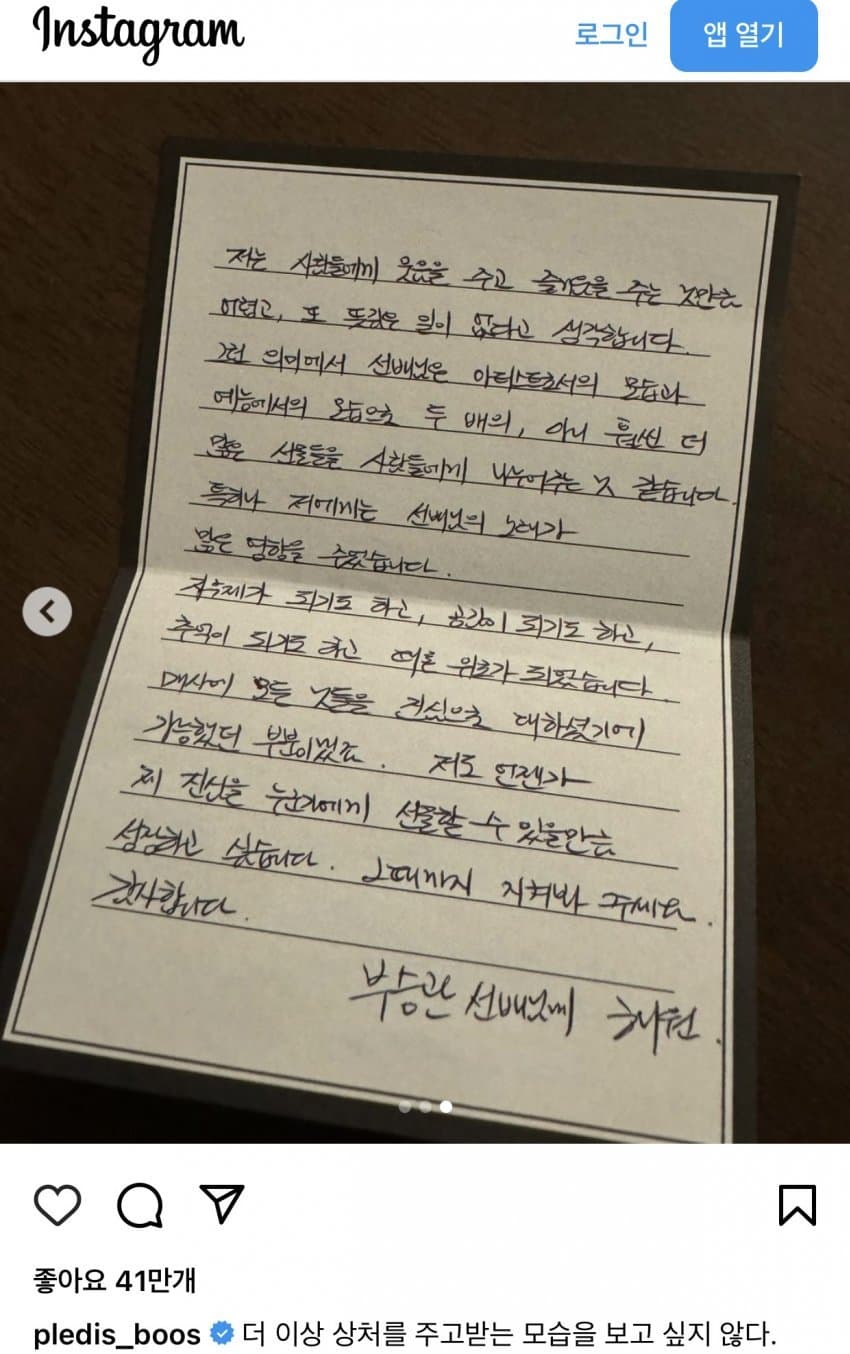 Instagram
로그인
앱 열기
저는 사람들에게 웃음을 주고 즐거움을 주는 것만큼
어렵고, 또 뜻깊은 일이 없다고 생각합니다.
그런 의미에서 선배님은 아티스트로서의 모습과
예능에서의 모습으로 두 배의, 아니 훨씬 더
많은 선물들을 사람들에게 나누어주는 것 같습니다.
특히나 저에게는 선배님의 노래가
많은 영향을 주었습니다.
자극제가 되기도 하고, 공감이 되기도 하고,
추억이 되기도 하고 때론 위로가 되었습니다.
매사에 모든 것들을 진심으로 대하셨기에
가능했던 부분이었죠. 저도 언젠가
제 진심을 누군가에게 선물할 수 있을만큼
성장하고 싶습니다. 그때까지 지켜봐 주세요.
감사합니다.
부승관 선배님께
좋아요 41만개
pledis_boos 더 이상 상처를 주고받는 모습을 보고 싶지 않다.